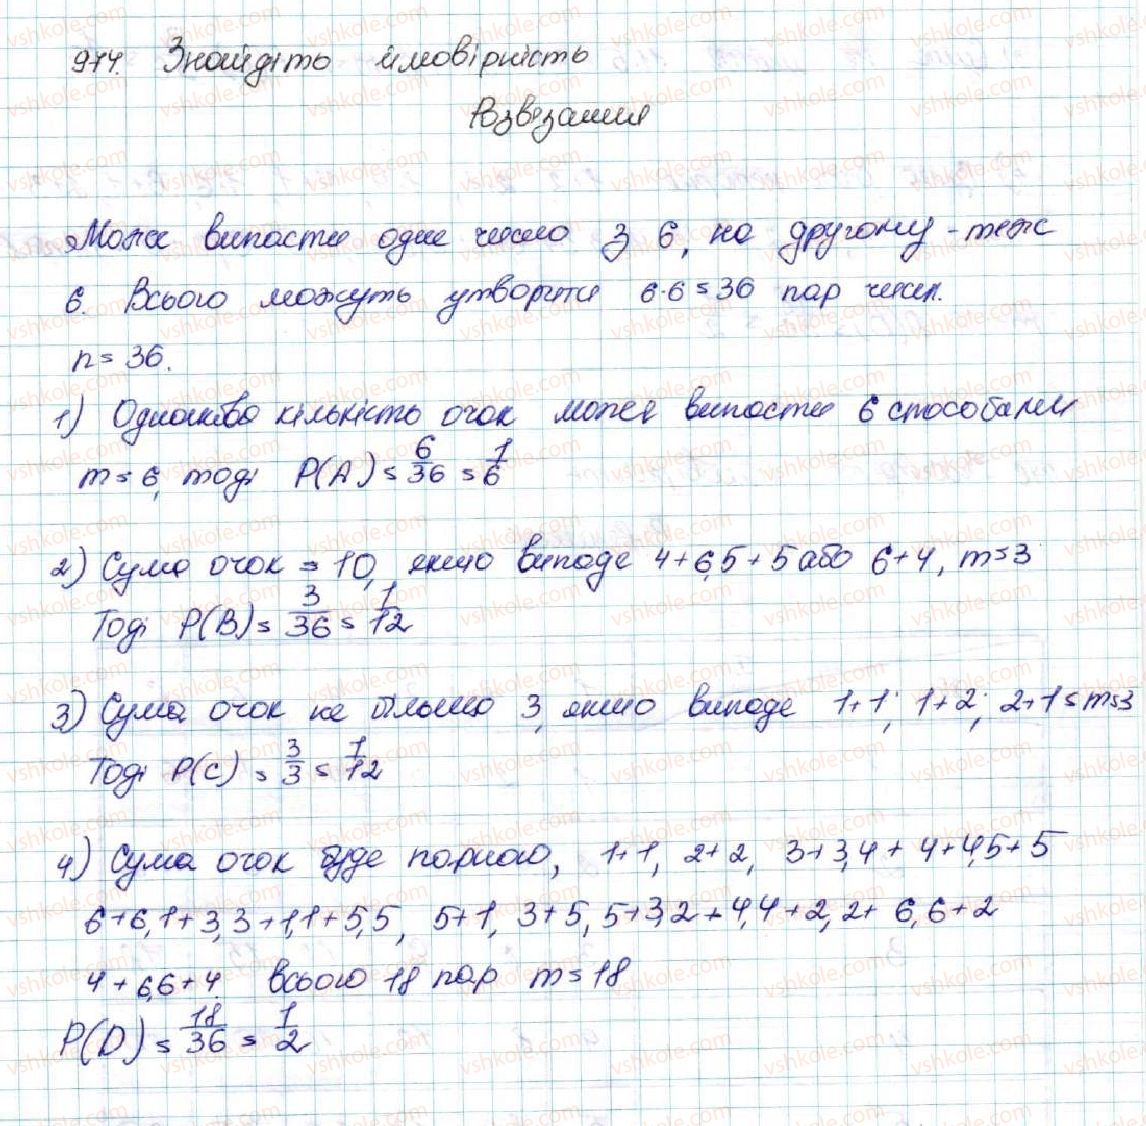 974. Знайдіть ймовірність
Розв'язання
Може випасти одне число з 6, на другому - теж
6. Всього можуть утворити 6·6=36 пар чисел.
n = 36.
1) Однакова кількість очок може випасти 6 способами
m = 6, тоді P(A) = 6/36 = 1/6
2) Сума очок = 10, якщо випаде 4+6, 5+5 або 6+4, m=3
Тоді P(B) = 3/36 = 1/12
3) Сума очок не більша 3, якщо випаде 1+1; 1+2; 2+1 = m=3
Тоді P(C) = 3/3 = 1/12
4) Сума очок буде парною, 1+1, 2+2, 3+3, 4+ 4+4, 5+5
6+6, 1+3, 3+1, 1+5, 5, 5+1, 3+5, 5+3, 2+4, 4+2, 2+6, 6+2
4+6, 6+4. Всього 18 пар m=18
P(D) = 18/36 = 1/2